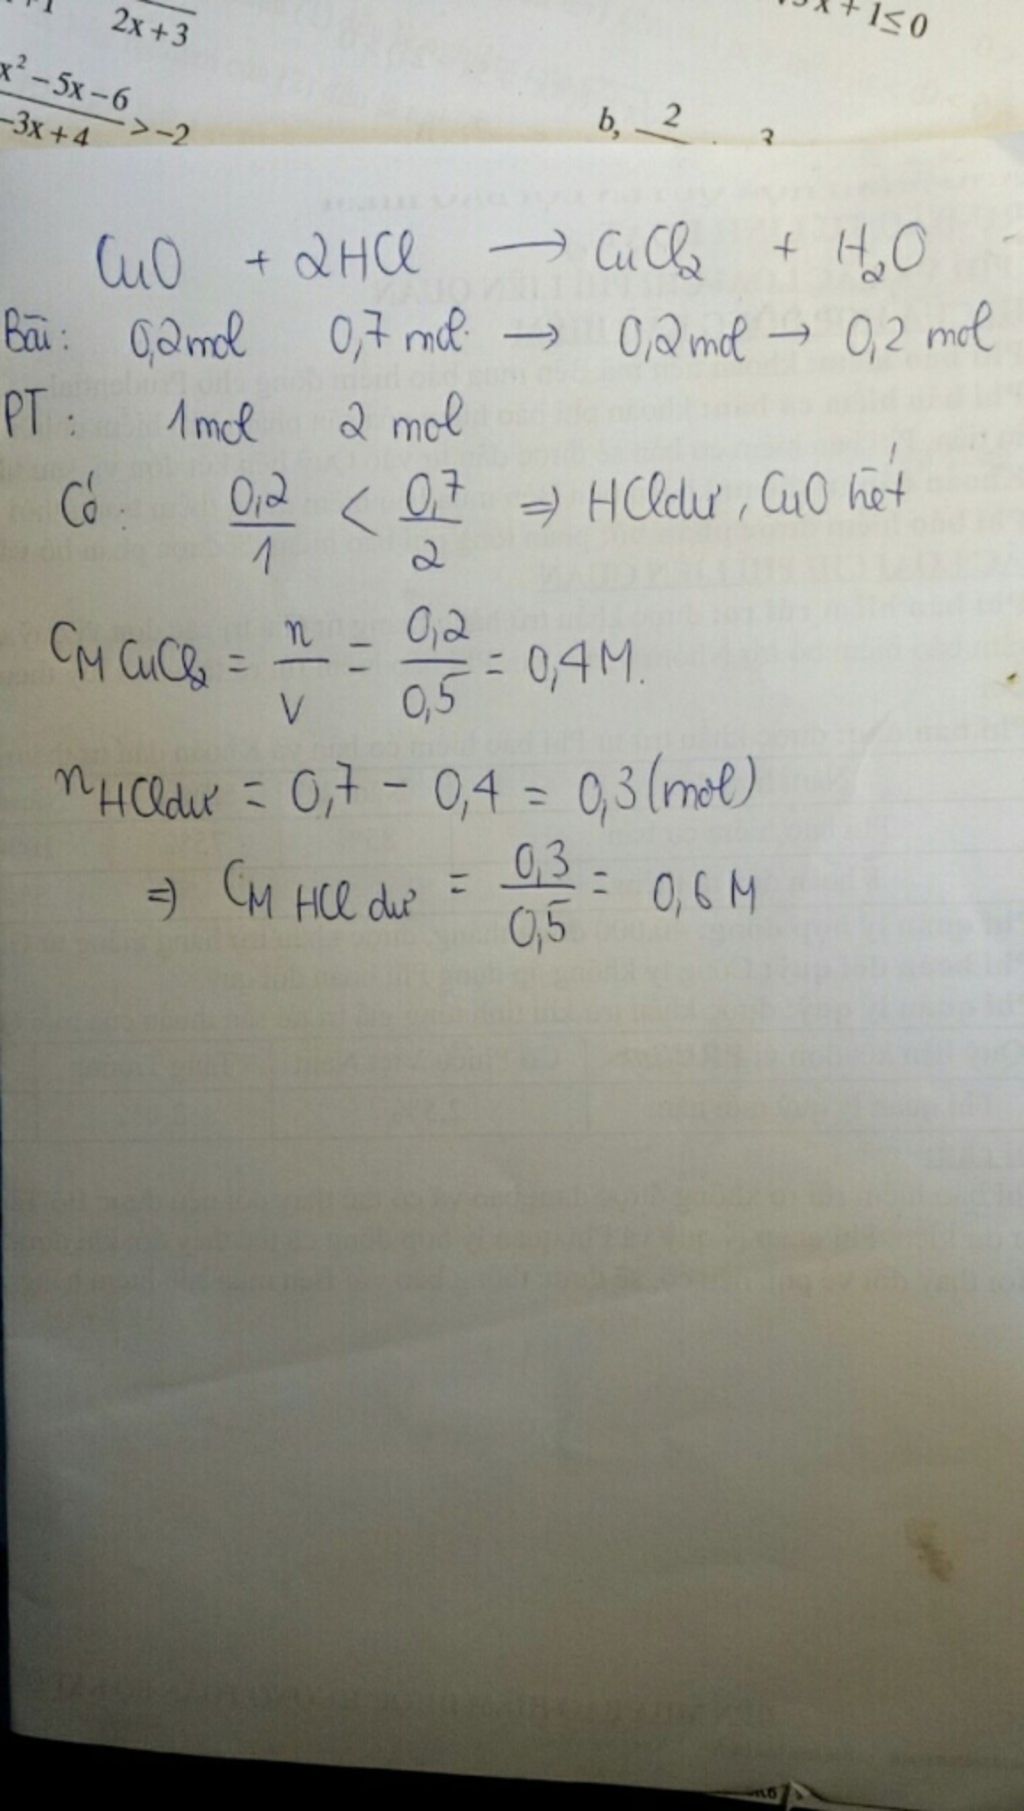 2x+3
x+1≤0
x²-5x-6
-3x+4 >-2
b, 2
CuO + 2HCl → CuCl₂ + H₂O
Bài: 0,2mol 0,7 mol → 0,2mol → 0,2 mol
PT: 1mol 2 mol
Có: 0,2/1 < 0,7/2 ⇒ HCl dư, CuO hết
CM CuCl₂ = n/V = 0,2/0,5 = 0,4M.
nHCl dư = 0,7 - 0,4 = 0,3(mol)
⇒ CM HCl dư = 0,3/0,5 = 0,6 M